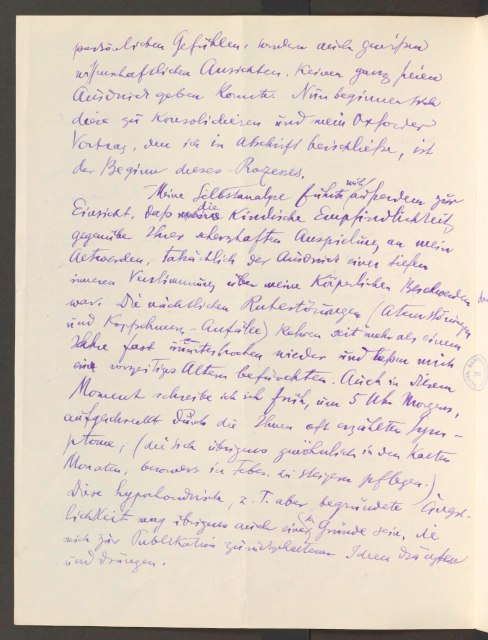 persönlichen Gefühlen, sondern auch gewissen
wissenschaftlichen Ansichten keinen ganz freien
Ausdruck geben konnte. Nun beginnen sich
diese zu konsolidieren und mein Oxforder
Vortrag, den ich in Abschrift beischließe, ist
der Beginn dieses Prozesses.
Meine Selbstanalyse führte mich außerdem zur
Einsicht, daß die kindliche Empfindlichkeit
gegenüber Ihrer scherzhaften Anspielung an mein
Altwerden, tatsächlich der Ausdruck einer tiefen
inneren Verstimmung über meine körperlichen Beschwerden
war. Die nächtlichen Ruhestörungen (Atemstörungen
und Kopfschmerz-Anfälle) kehren seit mehr als einem
Jahre fast ununterbrochen wieder und ließen mich
ein vorzeitiges Altern befürchten. Auch in diesem
Moment schreibe ich früh, um 5 Uhr Morgens,
aufgeschreckt durch die Ihnen oft erzählten Symp-
ptome; (die sich übrigens gewöhnlich in den kalten
Monaten, besonders in Feber. zu steigern pflegen.)
Diese hypochondrische, z. T. aber begründete Ängst-
lichkeit mag übrigens auch einer der Gründe sein, die
mich zur Publikation zurückgehaltener Ideen
und drängen.